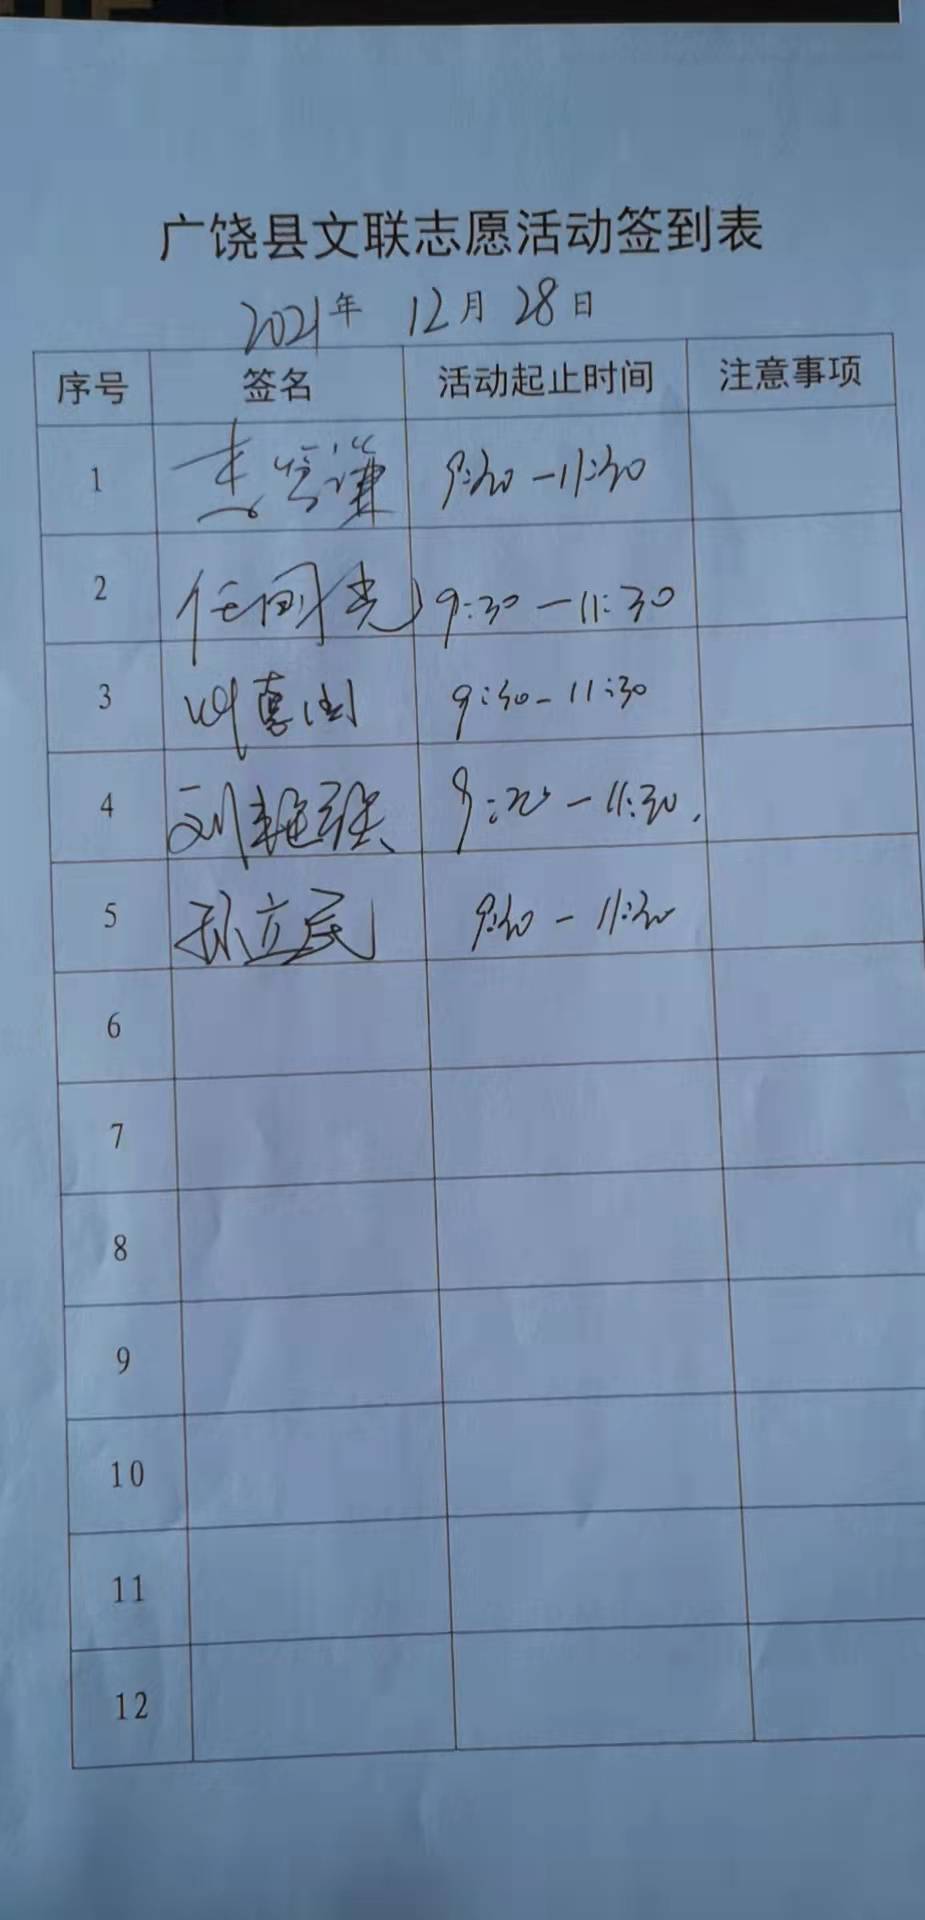 广饶县文联志愿活动签到表
2021年 12月 28日
序号 签名 活动起止时间 注意事项
1 9:30-11:30
2 任同光 9:30-11:30
3 9:30-11:30
4 刘 11:30.
5 孙立民 9:30-11:30
6
7
8
9
10
11
12